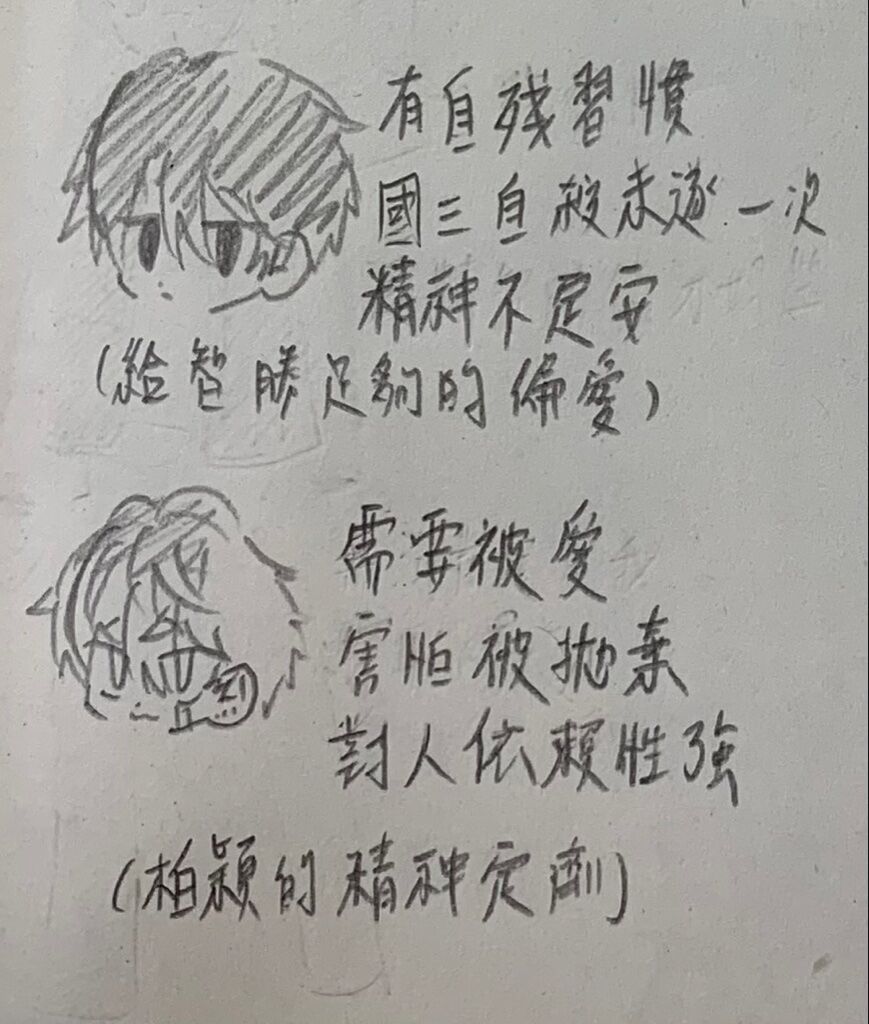 有自殘習慣
國三自殺未遂一次
精神不足安
(給智勝足夠的偏愛)
需要被愛
害怕被拋棄
對人依賴性強
(柏穎的精神定劑)